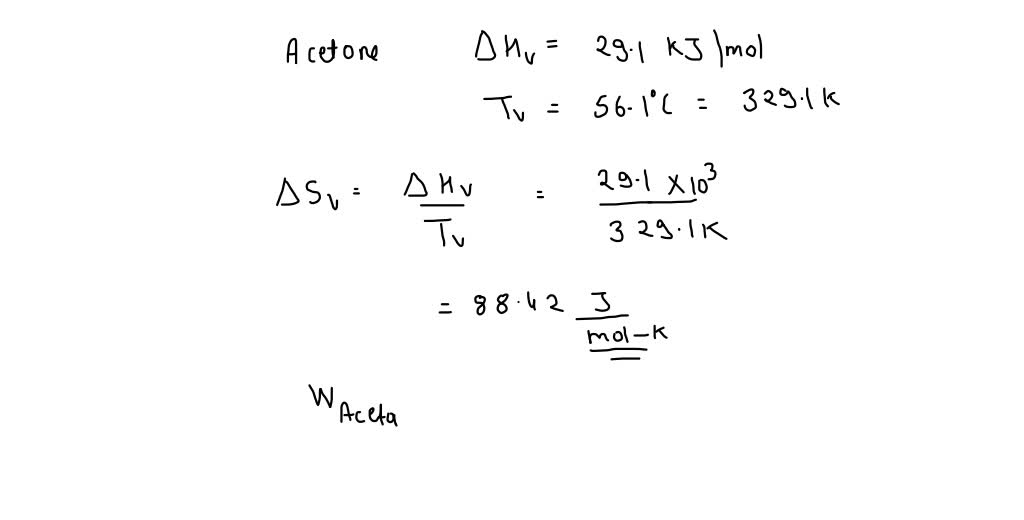 Acetone ΔHv = 29.1 KJ/mol
Tv = 56.1°C = 329.1 K
ΔSv = ΔHv / Tv = 29.1 X10³ / 329.1 K
= 88.42 J / mol-K
W Aceta